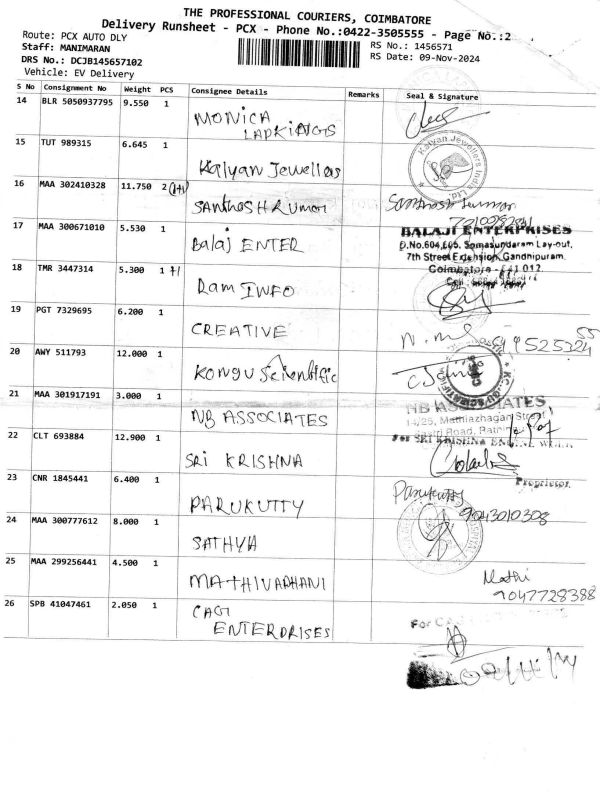 THE PROFESSIONAL COURIERS, COIMBATORE
Delivery Runsheet - PCX - Phone No.:0422-3505555 - Page No.:2
Route: PCX AUTO DLY
RS No.: 1456571
Staff: MANIMARAN
RS Date: 09-Nov-2024
DRS No.: DCJB145657102
Vehicle: EV Delivery
S No Consignment No Weight PCS Consignee Details Remarks Seal & Signature
14 BLR 5050937795 9.550 1
MONICA
15 TUT 989315 6.645 1
Kalyan Jewellers
Kalyan Jewellers India Ltd
16 MAA 302410328 11.750 2 (1+1)
SANTHOSH KUMAR
17 MAA 300671010 5.530 1
Balaj ENTER
BALAJI ENTERPRISES
D.No.604,605, Somasundaram Lay-out,
7th Street Extension, Gandhipuram,
Coimbatore - 641 012.
18 TMR 3447314 5.300 1 +1
Ram INFO
19 PGT 7329695 6.200 1
CREATIVE
20 AWY 511793 12.000 1
Kongu Scientific
21 MAA 301917191 3.000 1
NB ASSOCIATES
NB ASSOCIATES
14/25, Mathiazhagan Street
22 CLT 693884 12.900 1
SRI KRISHNA
For SRI KRISHNA
Proprietor
23 CNR 1845441 6.400 1
PARUKUTTY
Parukutty
9043010308
24 MAA 300777612 8.000 1
SATHYA
25 MAA 299256441 4.500 1
MATHIVADHANI
Mathi
9047728388
26 SPB 41047461 2.050 1
CAGI
ENTERPRISES